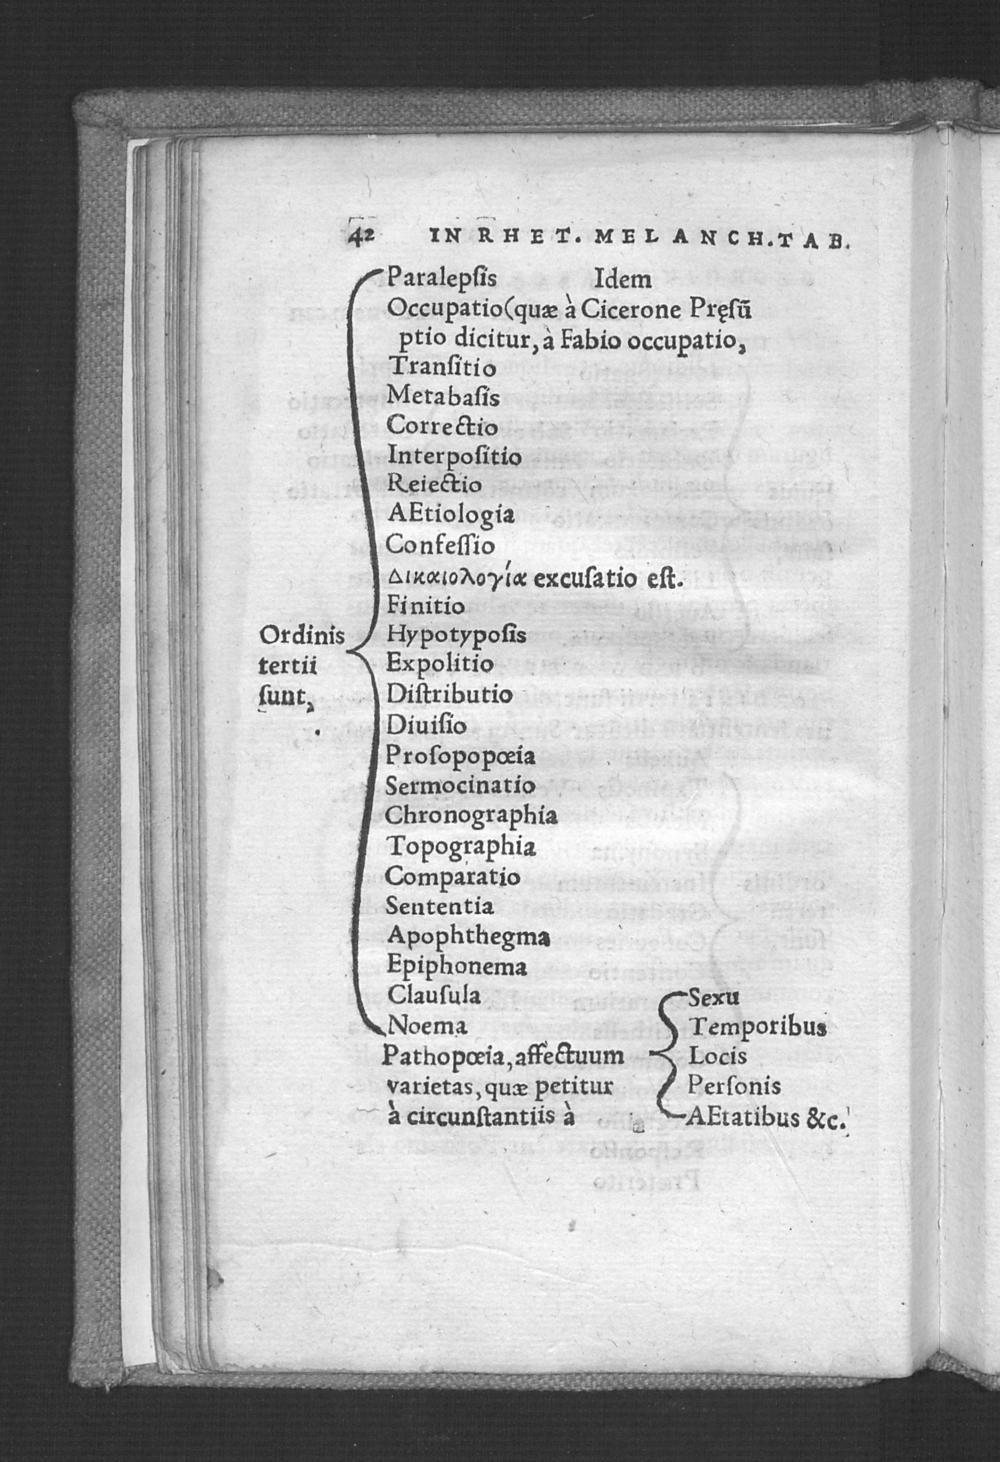 42 IN RHET. MELANCH. TAB.
Paralepſis Idem
Occupatio(quæ à Cicerone Pręſũ
ptio dicitur, à Fabio occupatio,
Tranſitio
Metabaſis
Correctio
Interpoſitio
Reiectio
AEtiologia
Confeſſio
Δικαιολογία excuſatio eſt.
Finitio
Ordinis
tertii
ſunt,
Hypotypoſis
Expolitio
Diſtributio
Diuiſio
Proſopopœia
Sermocinatio
Chronographia
Topographia
Comparatio
Sententia
Apophthegma
Epiphonema
Clauſula
Noema
Pathopœia, affectuum
varietas, quæ petitur
à circunſtantiis à
Sexu
Temporibus
Locis
Perſonis
AEtatibus &c.